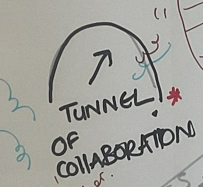 TUNNEL
OF
COLLABORATION